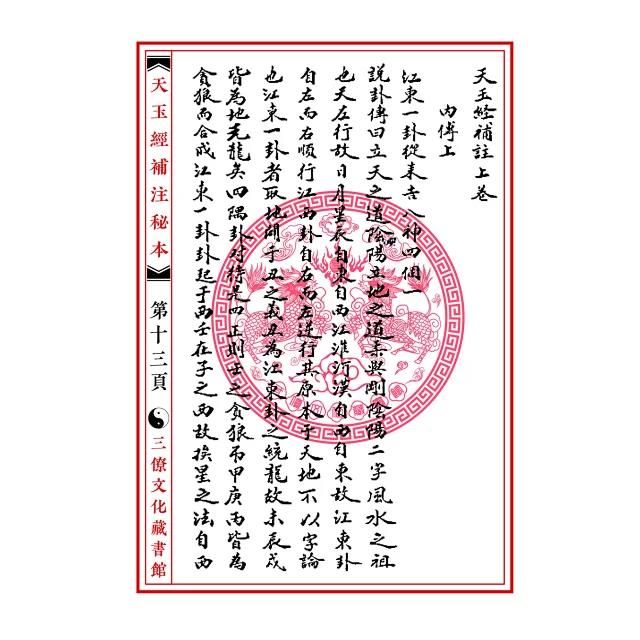 天玉經補註上卷
內傳上
江東一卦從來吉八神四個一
說卦傳曰立天之道陰陽立地之道柔與剛陰陽二字風水之祖
也天左行故日月星辰自東自西江淮河漢自西自東故江東卦
自左而右順行江西卦自右而左逆行其原本于天地不以字論
也江東一卦者取地闢于丑之義丑為江東卦之統龍故未辰戌
皆為地元龍矣四隅卦對待是四正則壬之貪狼吊甲庚丙皆為
貪狼而合成江東一卦卦起于西壬在子之西故挨星之法自西
天玉經補注秘本
第十三頁
三僚文化藏書館